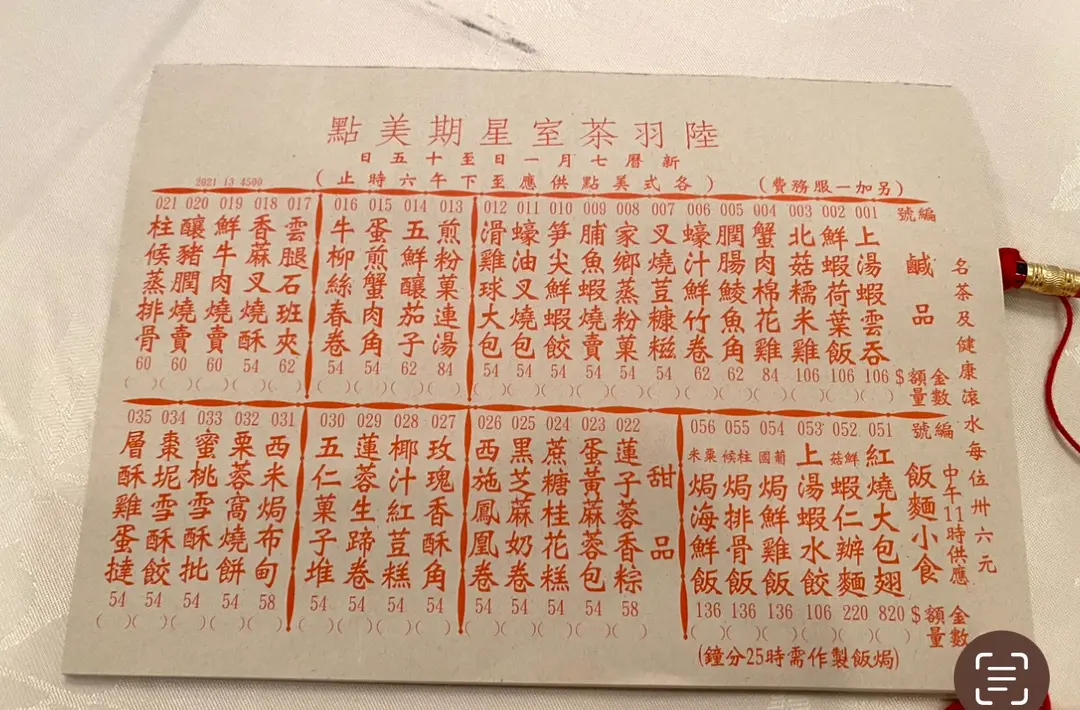 陸羽茶室星期美點
新曆七月一日至十五日
(各式美點供應至下午六時止)
(另加一服務費)
2021 13 4500
名茶及健康滾水每位卅六元
編號
鹹品
金額$
數量
001 上湯蝦雲吞 106 ( )
002 鮮蝦荷葉飯 106 ( )
003 北菇糯米雞 106 ( )
004 蟹肉棉花雞 84 ( )
005 膶腸鯪魚角 62 ( )
006 蠔汁鮮竹卷 62 ( )
007 叉燒荳糠糍 54 ( )
008 家鄉蒸粉菓 54 ( )
009 脯魚蝦燒賣 54 ( )
010 笋尖鮮蝦餃 54 ( )
011 蠔油叉燒包 54 ( )
012 滑雞球大包 54 ( )
013 煎粉菓連湯 84 ( )
014 五鮮釀茄子 62 ( )
015 蛋煎蟹肉角 54 ( )
016 牛柳絲春卷 54 ( )
017 雲腿石班夾 62 ( )
018 香蔴叉燒酥 54 ( )
019 鮮牛肉燒賣 60 ( )
020 釀豬膶燒賣 60 ( )
021 柱候蒸排骨 60 ( )
編號
飯麵小食
中午11時供應
金額$
數量
051 紅燒大包翅 820 ( )
052 鮮菇蝦仁辦麵 220 ( )
053 上湯蝦水餃 106 ( )
054 葡國焗鮮雞飯 136 ( )
055 柱候焗排骨飯 136 ( )
056 粟米焗海鮮飯 136 ( )
(焗飯製作需時25分鐘)
甜品
022 蓮子蓉香粽 58 ( )
023 蛋黃蔴蓉包 54 ( )
024 蔗糖桂花糕 54 ( )
025 黑芝蔴奶卷 54 ( )
026 西施鳳凰卷 54 ( )
027 玫瑰香酥角 54 ( )
028 椰汁紅荳糕 54 ( )
029 蓮蓉生蹄卷 54 ( )
030 五仁菓子堆 54 ( )
031 西米焗布甸 58 ( )
032 栗蓉窩燒餅 54 ( )
033 蜜桃雪酥批 54 ( )
034 棗坭雪酥餃 54 ( )
035 層酥雞蛋撻 54 ( )